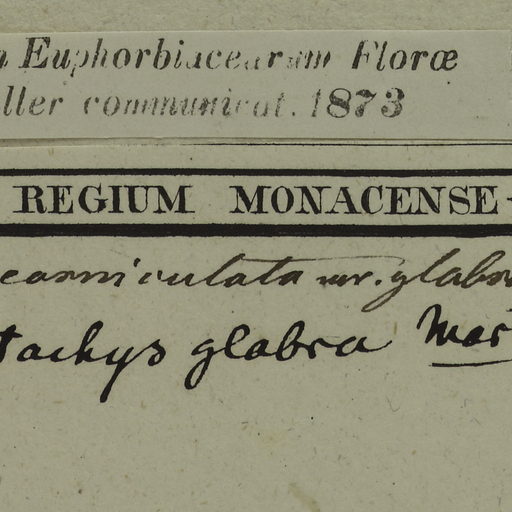 Euphorbiacearum Floræ
ller communicat. 1873
REGIUM MONACENSE
corniculata var. glabra
tachys glabra Mar